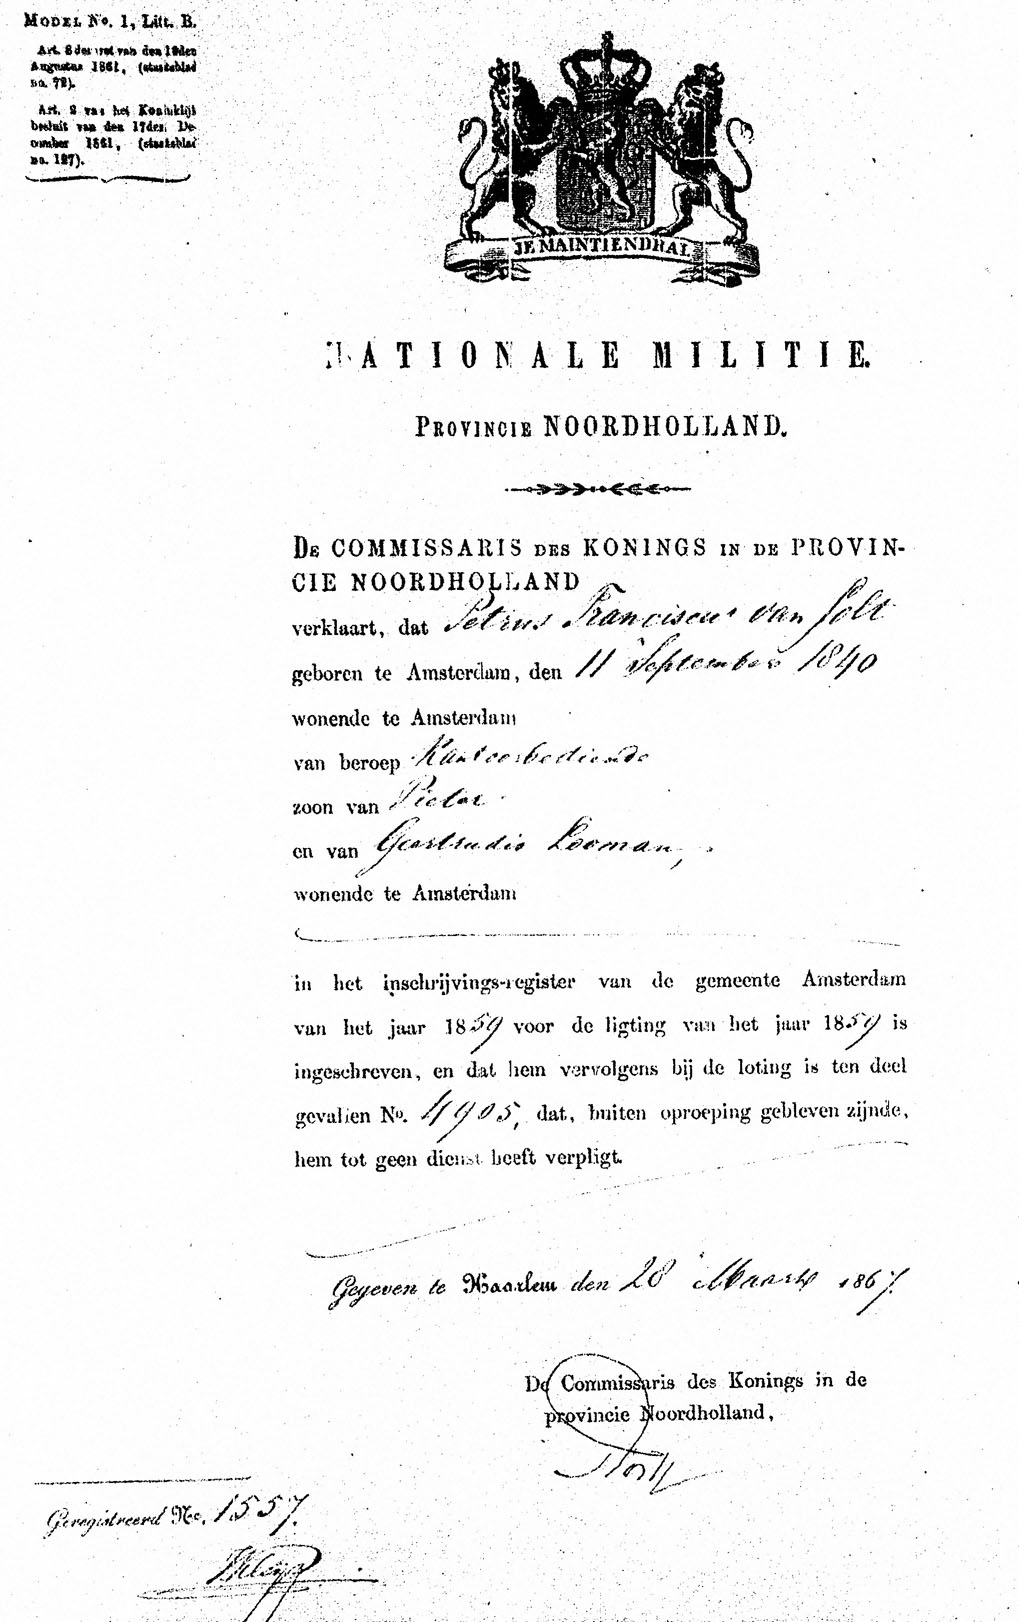 MODEL No. 1, Litt. B.
Art. 8 der wet van den 19den
Augustus 1861, (staatsblad
no. 72).
Art. 2 van het Koninklijk
besluit van den 17den De-
cember 1861, (staatsblad
no. 127).
JE MAINTIENDRAI
NATIONALE MILITIE.
PROVINCIE NOORDHOLLAND.
DE COMMISSARIS DES KONINGS IN DE PROVIN-
CIE NOORDHOLLAND
verklaart, dat Petrus Franciscus van Golt
geboren te Amsterdam, den 11 September 1840
wonende te Amsterdam
van beroep Kantoorbediende
zoon van Pieter
en van Geertrudis Looman,
wonende te Amsterdam
in het inschrijvings-register van de gemeente Amsterdam
van het jaar 1859 voor de ligting van het jaar 1859 is
ingeschreven, en dat hem vervolgens bij de loting is ten deel
gevallen No. 4905, dat, buiten oproeping gebleven zijnde,
hem tot geen dienst heeft verpligt.
Gegeven te Haarlem den 28 Maart 1867.
De Commissaris des Konings in de
provincie Noordholland,
Geregistreerd No. 1557.